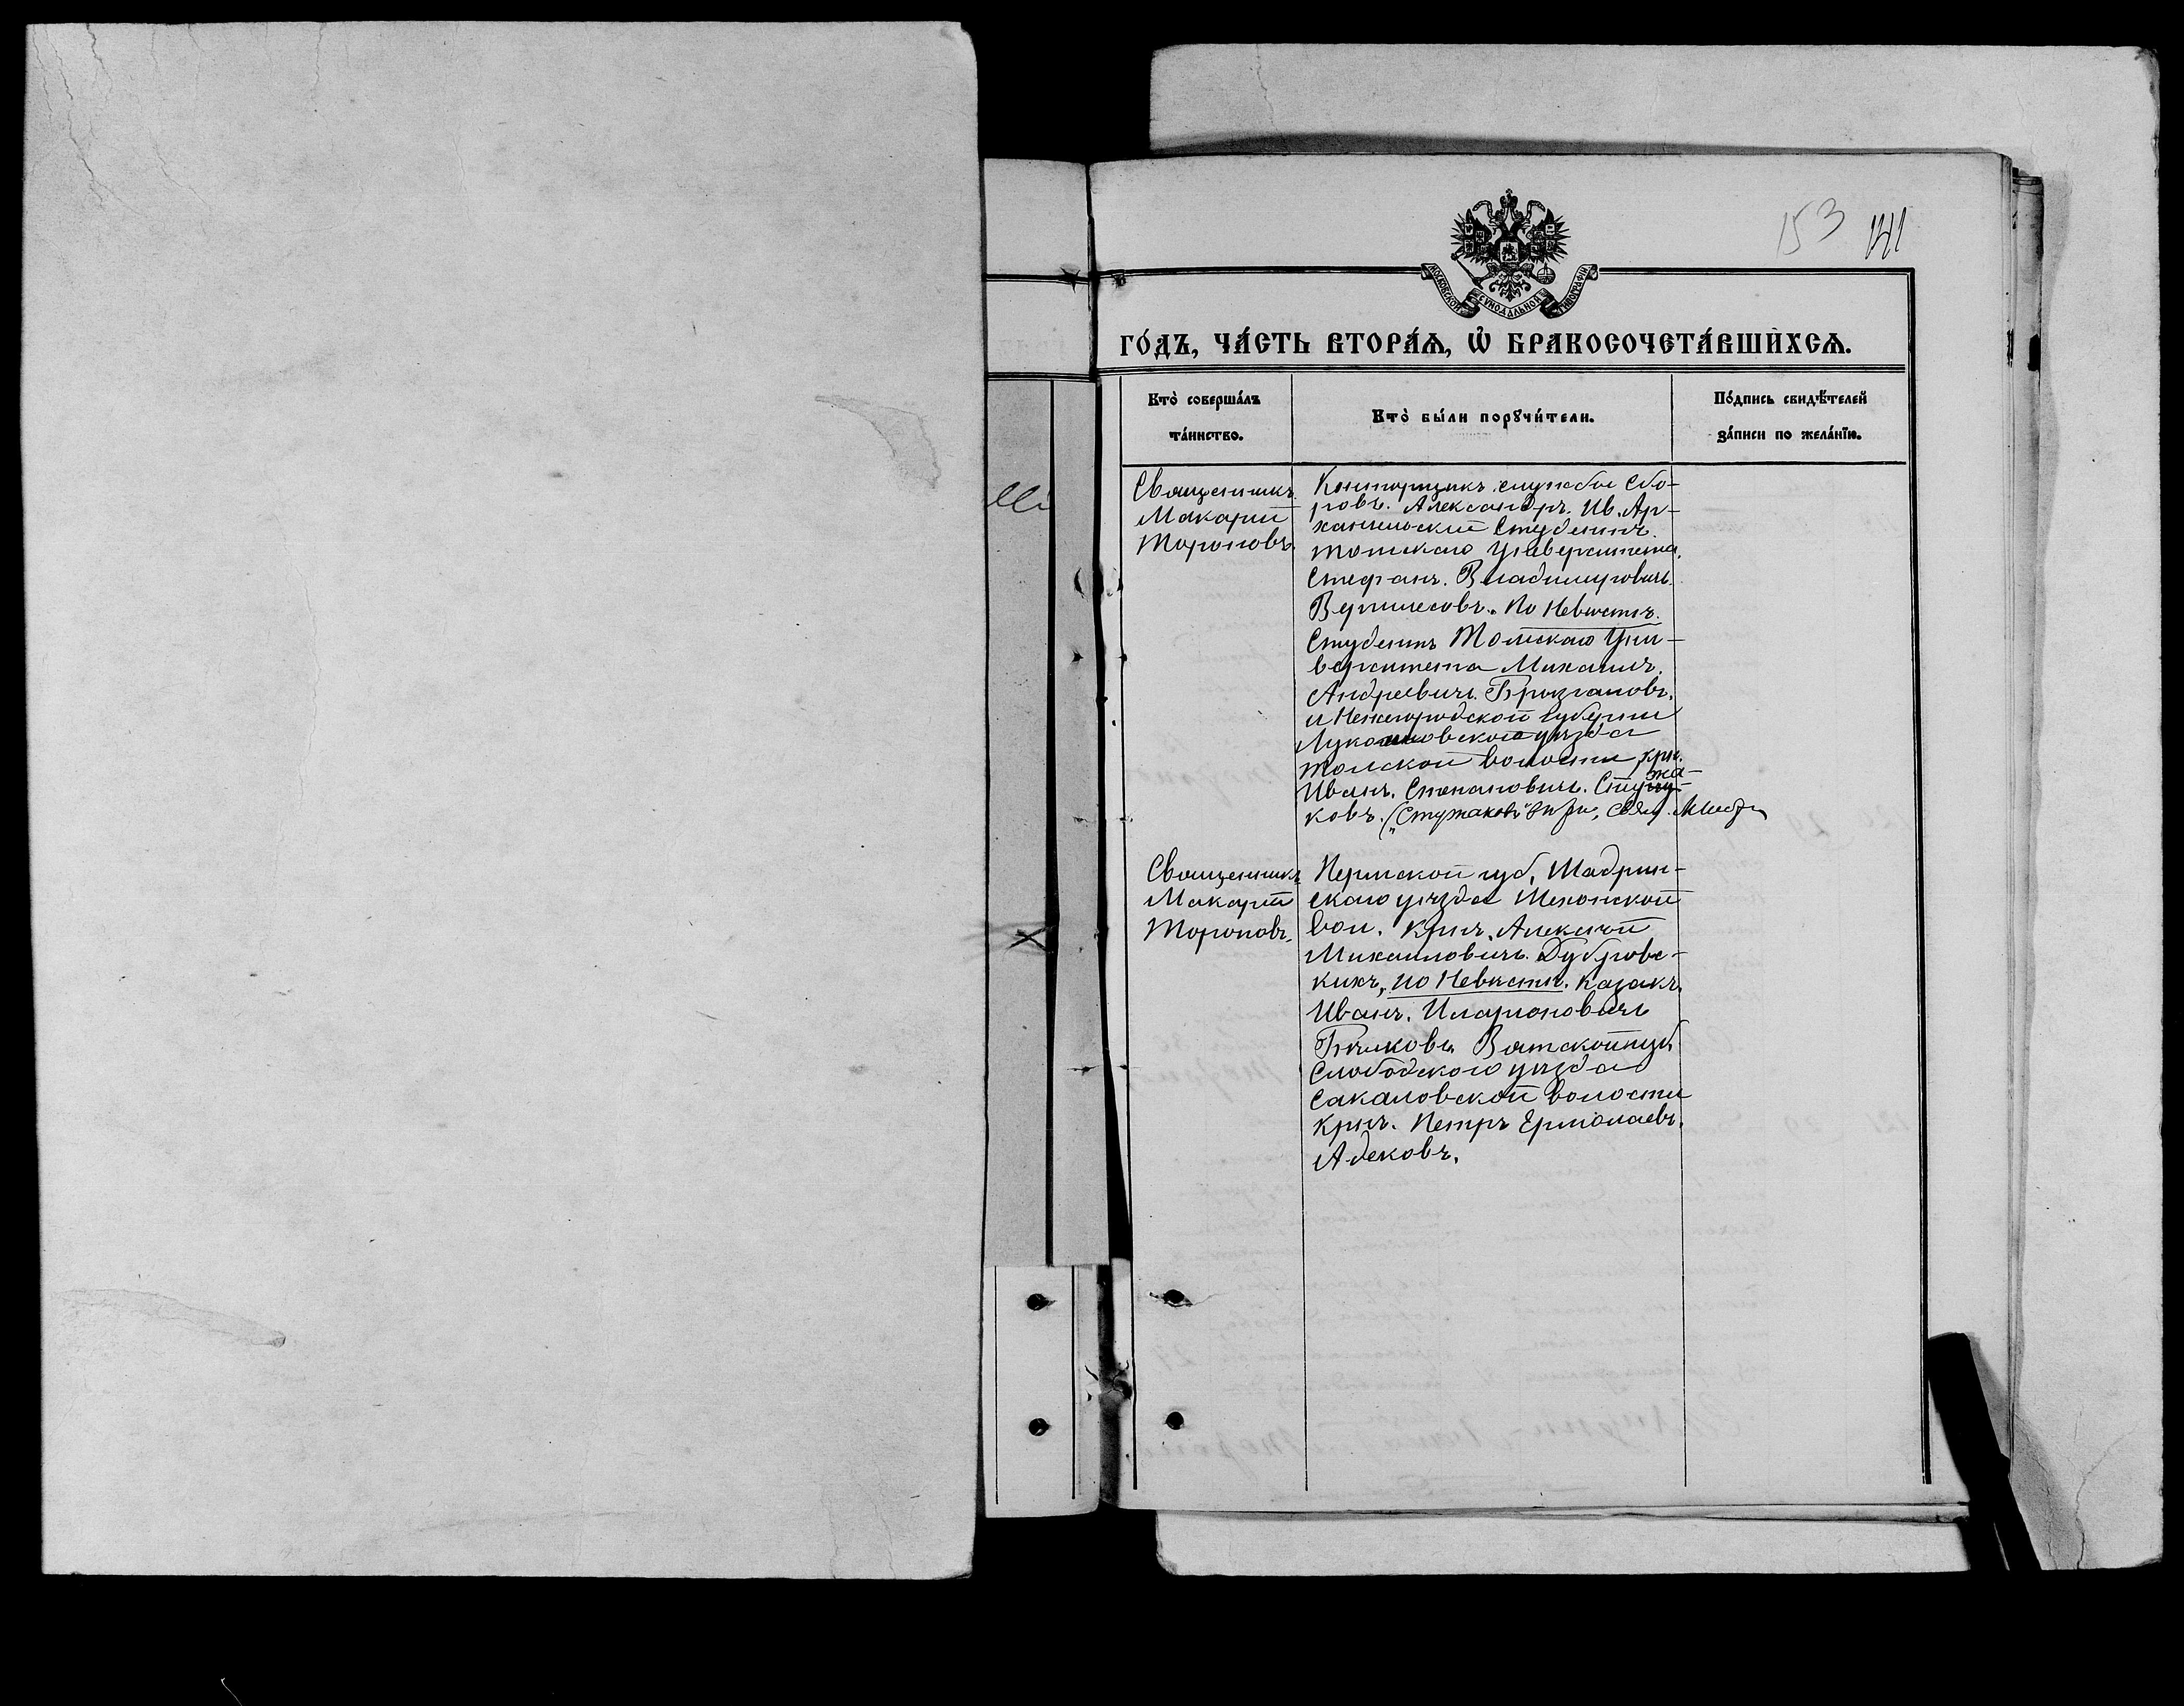 153 141
МОСКОВСКОЙ СѴНОДАЛЬНОЙ ТИПОГРАФІИ
ГО́ДЪ, ЧА́СТЬ ВТОРА́Ѧ, Ѡ҆ БРАКОСОЧЕТА́ВШИХСѦ.
Кто̀ соверша́лъ
та́инство.
Кто̀ бы́ли порꙋчи́тели.
По́дпись свидѣ́телей
за́писи по жела́нїю.
Священникъ
Макарій
Тороповъ.
Конторщикъ службы сбо-
ровъ. Александръ. Ив. Ар-
хангельскій Студентъ.
томскаго Университета.
Стефанъ. Владимировичъ.
По Невѣстѣ.
Студентъ Томскаго Уни-
верситета Михаилъ.
Андреевичъ.
и Нежегородской Губерніи
Лукояновского уѣзда
волости, крн.
Иванъ. Степановичъ. Стужа-
ковъ. („Стужаковъ" Свящ.
Священникъ
Макарій
Тороповъ.
Пермской губ, Шадрин-
скаго уѣзда Мехонской
вол. крнъ. Алексѣй
Михаиловичъ. Дубровс-
кихъ, по Невѣстѣ. казакъ
Иванъ. Иларионовичъ
Бѣлковъ Вятской губ
Слободского уѣзда
Сакаловской волости
крнъ. Петръ Ермолаевъ.
Адековъ.